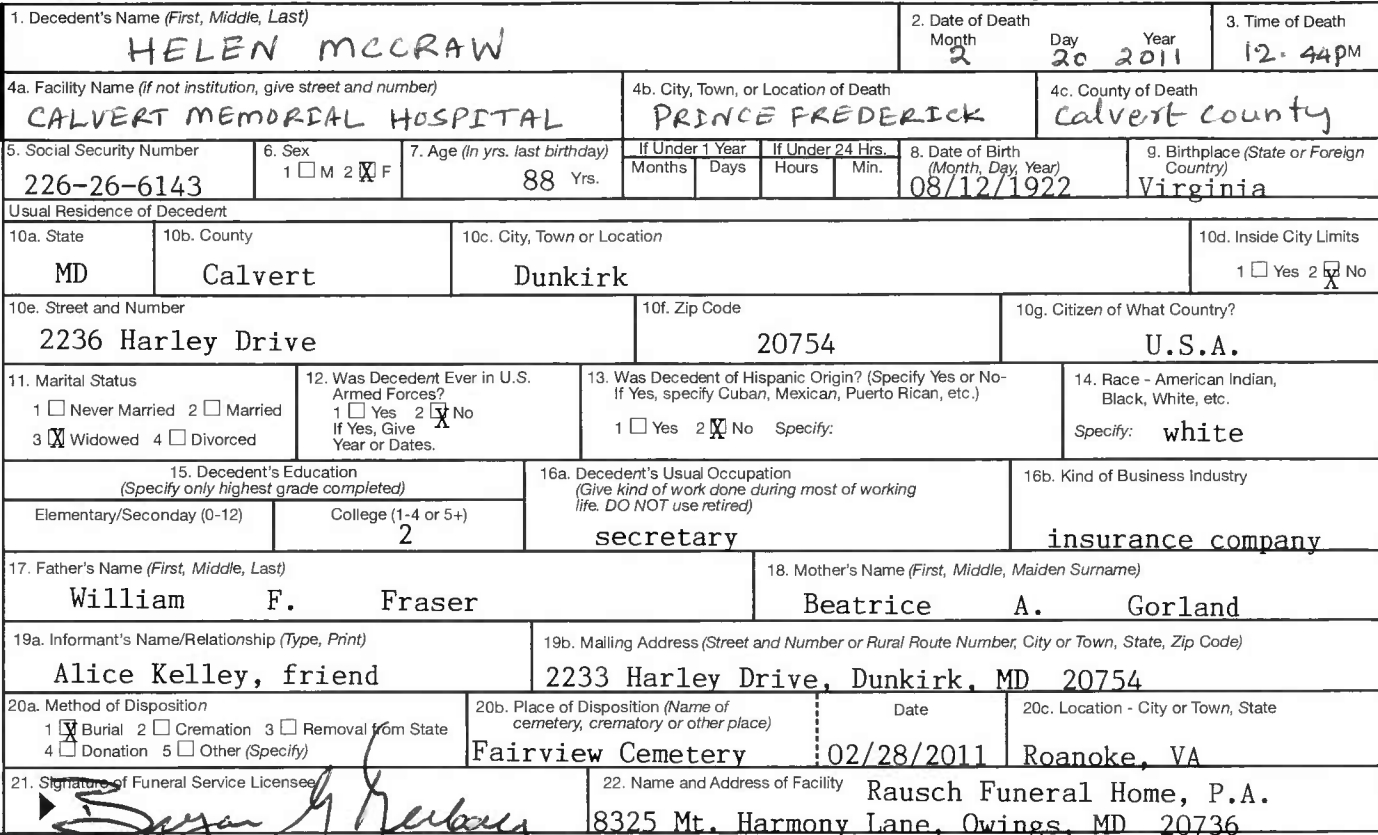 1. Decedent's Name (First, Middle, Last)
HELEN MCCRAW
2. Date of Death
Month Day Year
2 20 2011
3. Time of Death
12:44PM
4a. Facility Name (if not institution, give street and number)
CALVERT MEMORIAL HOSPITAL
4b. City, Town, or Location of Death
PRINCE FREDERICK
4c. County of Death
Calvert County
5. Social Security Number
226-26-6143
6. Sex
1 ☐ M 2 ☒ F
7. Age (In yrs. last birthday)
88 Yrs.
If Under 1 Year
Months Days
If Under 24 Hrs.
Hours Min.
8. Date of Birth
(Month, Day, Year)
08/12/1922
9. Birthplace (State or Foreign
Country)
Virginia
Usual Residence of Decedent
10a. State
MD
10b. County
Calvert
10c. City, Town or Location
Dunkirk
10d. Inside City Limits
1 ☐ Yes 2 ☒ No
10e. Street and Number
2236 Harley Drive
10f. Zip Code
20754
10g. Citizen of What Country?
U.S.A.
11. Marital Status
1 ☐ Never Married 2 ☐ Married
3 ☒ Widowed 4 ☐ Divorced
12. Was Decedent Ever in U.S.
Armed Forces?
1 ☐ Yes 2 ☒ No
If Yes, Give
Year or Dates.
13. Was Decedent of Hispanic Origin? (Specify Yes or No-
If Yes, specify Cuban, Mexican, Puerto Rican, etc.)
1 ☐ Yes 2 ☒ No Specify:
14. Race - American Indian,
Black, White, etc.
Specify: white
15. Decedent's Education
(Specify only highest grade completed)
Elementary/Seconday (0-12)
College (1-4 or 5+)
2
16a. Decedent's Usual Occupation
(Give kind of work done during most of working
life. DO NOT use retired)
secretary
16b. Kind of Business Industry
insurance company
17. Father's Name (First, Middle, Last)
William F. Fraser
18. Mother's Name (First, Middle, Maiden Surname)
Beatrice A. Gorland
19a. Informant's Name/Relationship (Type, Print)
Alice Kelley, friend
19b. Mailing Address (Street and Number or Rural Route Number, City or Town, State, Zip Code)
2233 Harley Drive, Dunkirk, MD 20754
20a. Method of Disposition
1 ☒ Burial 2 ☐ Cremation 3 ☐ Removal from State
4 ☐ Donation 5 ☐ Other (Specify)
20b. Place of Disposition (Name of
cemetery, crematory or other place)
Fairview Cemetery
Date
02/28/2011
20c. Location - City or Town, State
Roanoke, VA
21. Signature of Funeral Service Licensee
22. Name and Address of Facility Rausch Funeral Home, P.A.
8325 Mt. Harmony Lane, Owings, MD 20736